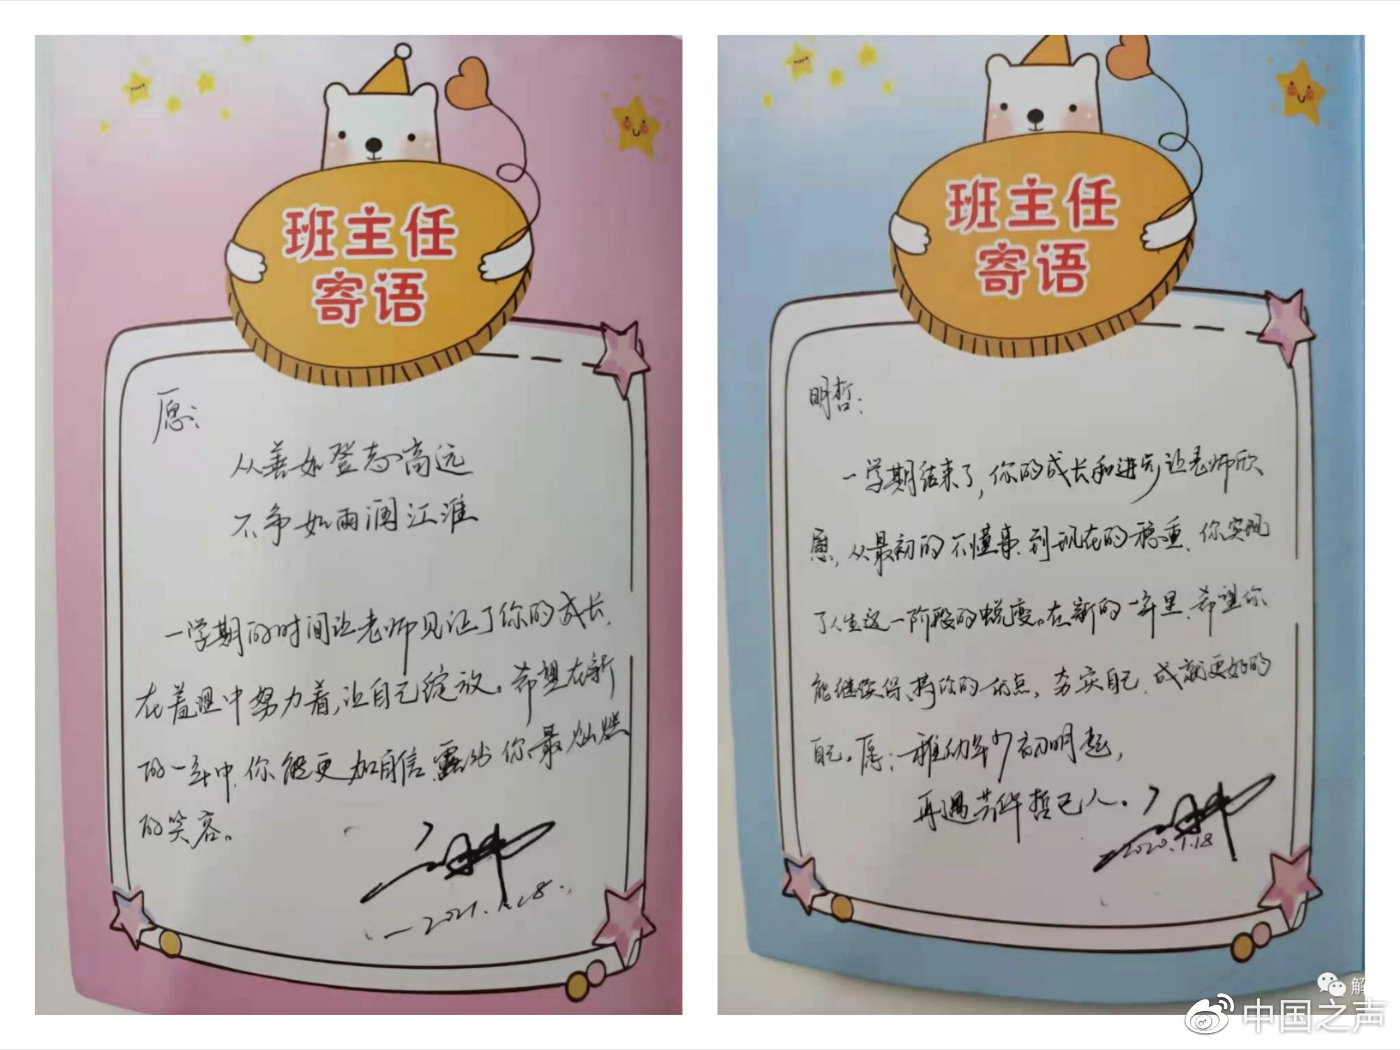 班主任
寄语
愿：
从善如登志高远
不争如雨润江淮
一学期的时间让老师见证了你的成长，
在着迷中努力着，让自己绽放。希望在新
的一年中，你能更加自信，露出你最灿烂
的笑容。
班主任
寄语
明哲：
一学期结束了，你的成长和进步让老师欣
慰，从最初的不懂事，到现在的稳重，你实现
了人生这一阶段的蜕变。在新的一年里，希望你
能继续保持你的优点，夯实自己，成就更好的
自己。愿：稚幼年少初明起，
再遇芳华哲已人。
2020.1.18
解
中国之声